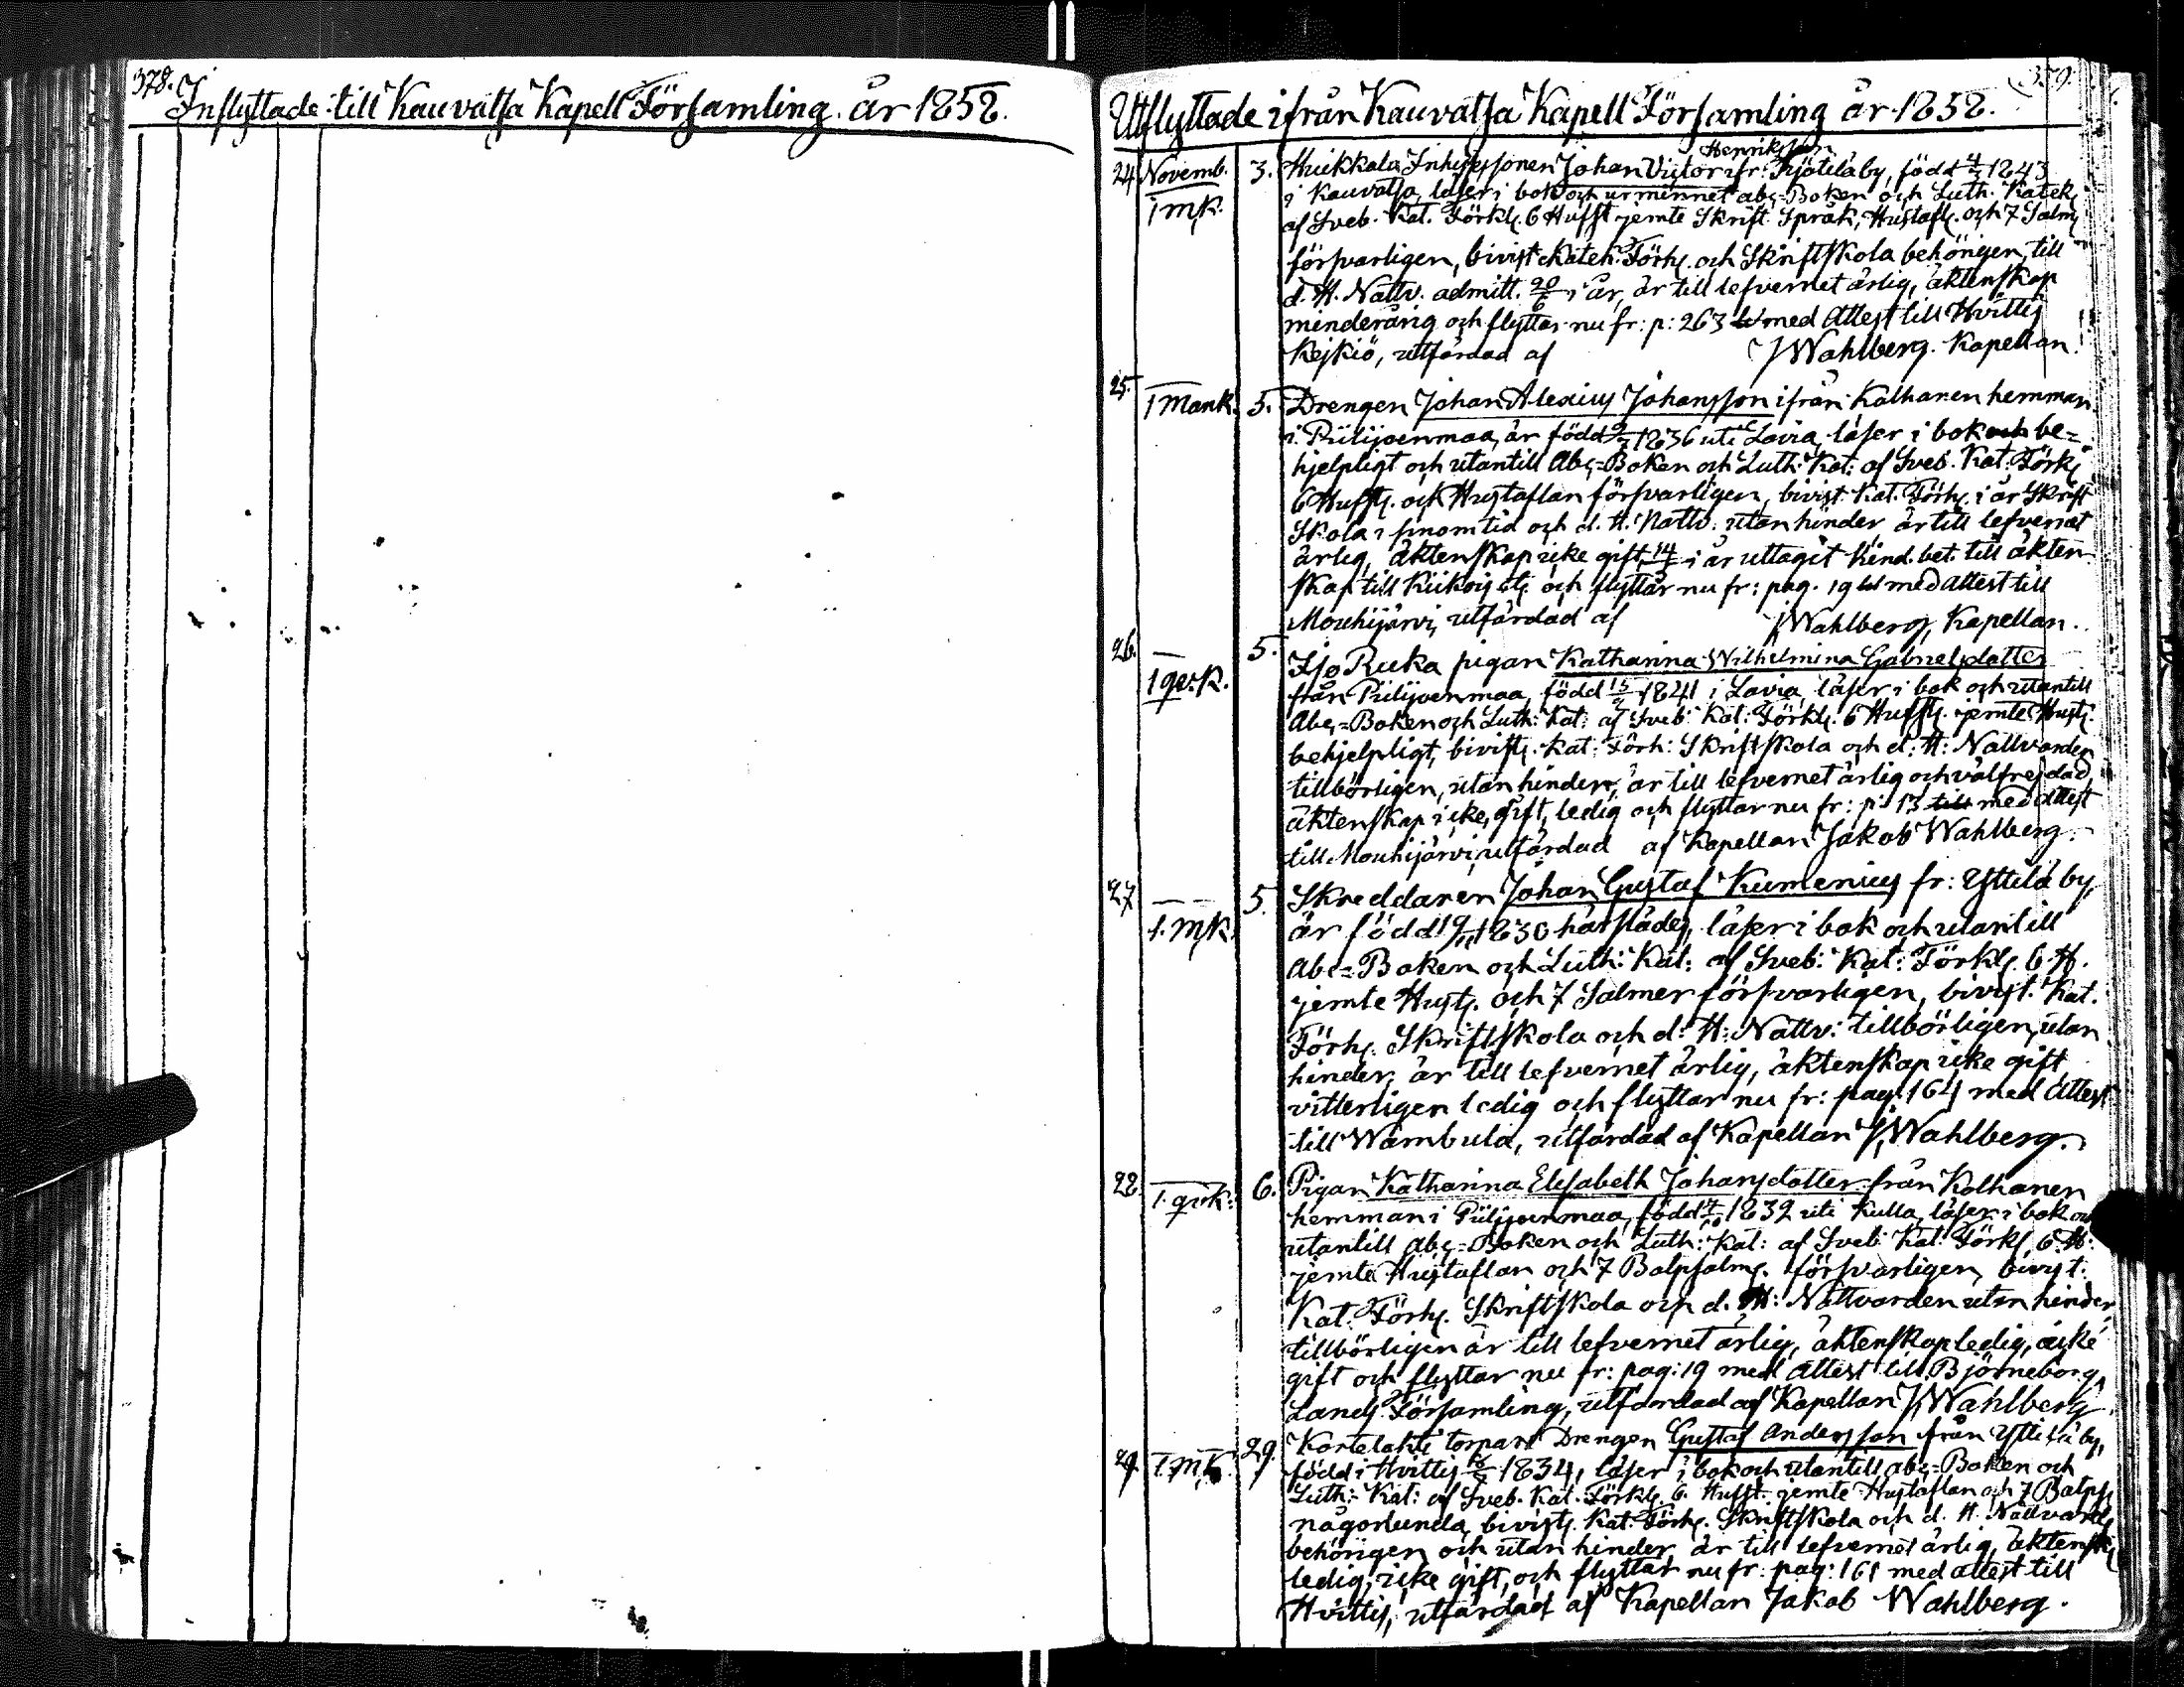 378.
Inflyttade till Kauvatsa Kapell Församling år 1858.
379.
Utflyttade ifrån Kauvatsa Kapell Församling år 1858.
Henriksson
24 Novemb. 3. Huikkala Inhysessonen Johan Victor ifr: by, född 4/3 1843
1 mk. i Kauvatsa, läser i bok och ur minnet abc-Boken och Luth. Katek.
af Sveb. Kat. Förkl. 6 Hufst jemte Skrift. Språk, Hustafl. och 7 Salm.
försvarligen, bivist Katek. Förh. och Skriftskola behörigen, till
d. H. Nattv. admitt. 20/6 i år, är till lefvernet ärlig, äktenskap
minderårig och flyttar nu fr: p: 263 med Attest till Hvittis
Kejkiö, utfärdad af J. Wahlberg. Kapellan.
25. 1 Mank. 5. Drengen Johan Alexius Johansson ifrån Kalhanen hemman
i Piilijoenmaa, är född 1836 uti Lavia, läser i bok och be-
hjelpligt och utantill Abc-Boken och Luth: Kat: af Sveb. Kat: Förkl.
6 Hufst. och Hustaflan försvarligen, bivist. Kat. Förh. i år Skrift
Skola i sinom tid och d. H. Nattv. utan hinder, är till lefvernet
ärlig, äktenskap icke gift, 14 i år uttagit hind. bet. till äkten-
skap till Kiikois och flyttar nu fr: pag. 19 med attest till
Mouhijärvi, utfärdad af J. Wahlberg, Kapellan.
26. 1 qv.k. 5. Iso Ruka pigan Katharina Wilhelmina Gabrielsdotter
från Piilijoenmaa, född 1841 i Lavia, läser i bok och utantill
Abc-Boken och Luth: Kat: af Sveb: Kat: Förkl. 6 Hufst. jemte Hust.
behjelpligt, bivist. Kat: Förh: Skriftskola och d: H: Nattvarden
tillbörligen, utan hinder, är till lefvernet ärlig och välfrejdad,
äktenskap icke gift, ledig och flyttar nu fr: p: 13 till med attest
till Mouhijärvi, utfärdad af Kapellan Jakob Wahlberg.
27 1. mk. 5. Skreddaren Johan Gustaf Kumenius fr: Yttilä by,
är född 1830 härstädes, läser i bok och utantill
Abc-Boken och Luth: Kat: af Sveb: Kat: Förkl. 6. H.
jemte Hust. och 7 Salmer försvarligen, bivist. Kat.
Förh. Skriftskola och d: H: Nattv: tillbörligen, utan
hinder, är till lefvernet ärlig, äktenskap icke gift
vitterligen ledig och flyttar nu fr: pag: 164 med Attest
till Wambula, utfärdad af Kapellan J. Wahlberg.
28. 1. qv.k: 6. Pigan Katharina Elisabeth Johansdotter från Kolhanen
hemman i Piilijoenmaa, född 1839 uti Kulla, läser i bok och
utantill Abc-Boken och Luth: Kat: af Sveb: Kat: Förkl. 6. H:
jemte Hustaflan och 7 Botpsalm. försvarligen, bivist.
Kat. Förh. Skriftskola och d. H: Nattvarden utan hinder,
tillbörligen är till lefvernet ärlig, äktenskap ledig, icke
gift och flyttar nu fr: pag: 19 med Attest till Björneborgs
Lands Församling, utfärdad af Kapellan J. Wahlberg
29. 1. m.k. 29. Kortelahti torpare Drengen Gustaf Andersson ifrån Yttilä by,
född i Hvittis 1834, läser i bok och utantill abc-Boken och
Luth: Kat: af Sveb. Kat. Förkl. 6. Hufst. jemte Hustaflan och 7 Botps.
någorlunda, bivist. Kat. Förh. Skriftskola och d. H. Nattvard.
behörigen och utan hinder, är till lefvernet ärlig, äktensk.
ledig, icke gift, och flyttar nu fr: pag: 161 med attest till
Hvittis, utfärdad af Kapellan Jakob Wahlberg.